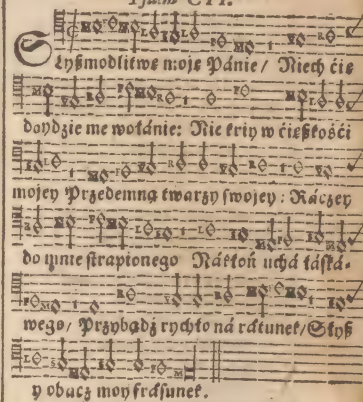 Psalm CII.
SLyßmodlitwe moje Pánie/ Niech ćie
doydzie me wołánie: Nie kriy w ćießkośći
mojey Przedemną twarzy swojey: Ráczey
do mnie strapionego Nákłoń uchá łáská-
wego/ Przybądź rychło ná rátunek/ Słyß
y obacz moy frásunek.